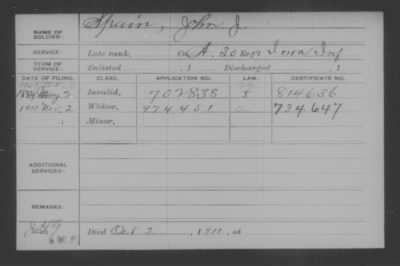 NAME OF SOLDIER: Spain, John J.
SERVICE: Late rank, Co. A, 30 Reg't Iowa Inf
TERM OF SERVICE: Enlisted , 1 Discharged , 1
DATE OF FILING. CLASS. APPLICATION NO. LAW. CERTIFICATE NO.
1889 May 7 Invalid, 702838 814656
1911 Nov. 2 Widow, 974451 734647
, Minor,
ADDITIONAL SERVICES:
REMARKS:
Died Oct 2 , 1911, at